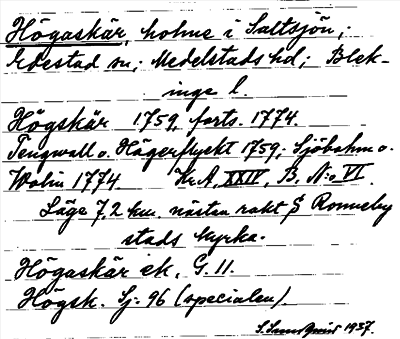 Högaskär, holme i Saltsjön,;
Edestad sn; Medelstads hd; Blek-
inge l.
Högskär 1759, forts. 1774.
Tengwall o. Hägerflycht 1759; Sjöbohm o.
Wolin 1774 Kr.A, XXIV, B, N:o VI.
Läge 7,2 km. nästan rakt S Ronneby
stads kyrka.
Högaskär ek. G. 11.
Högsk. Sj: 96 (specialen).
1937.